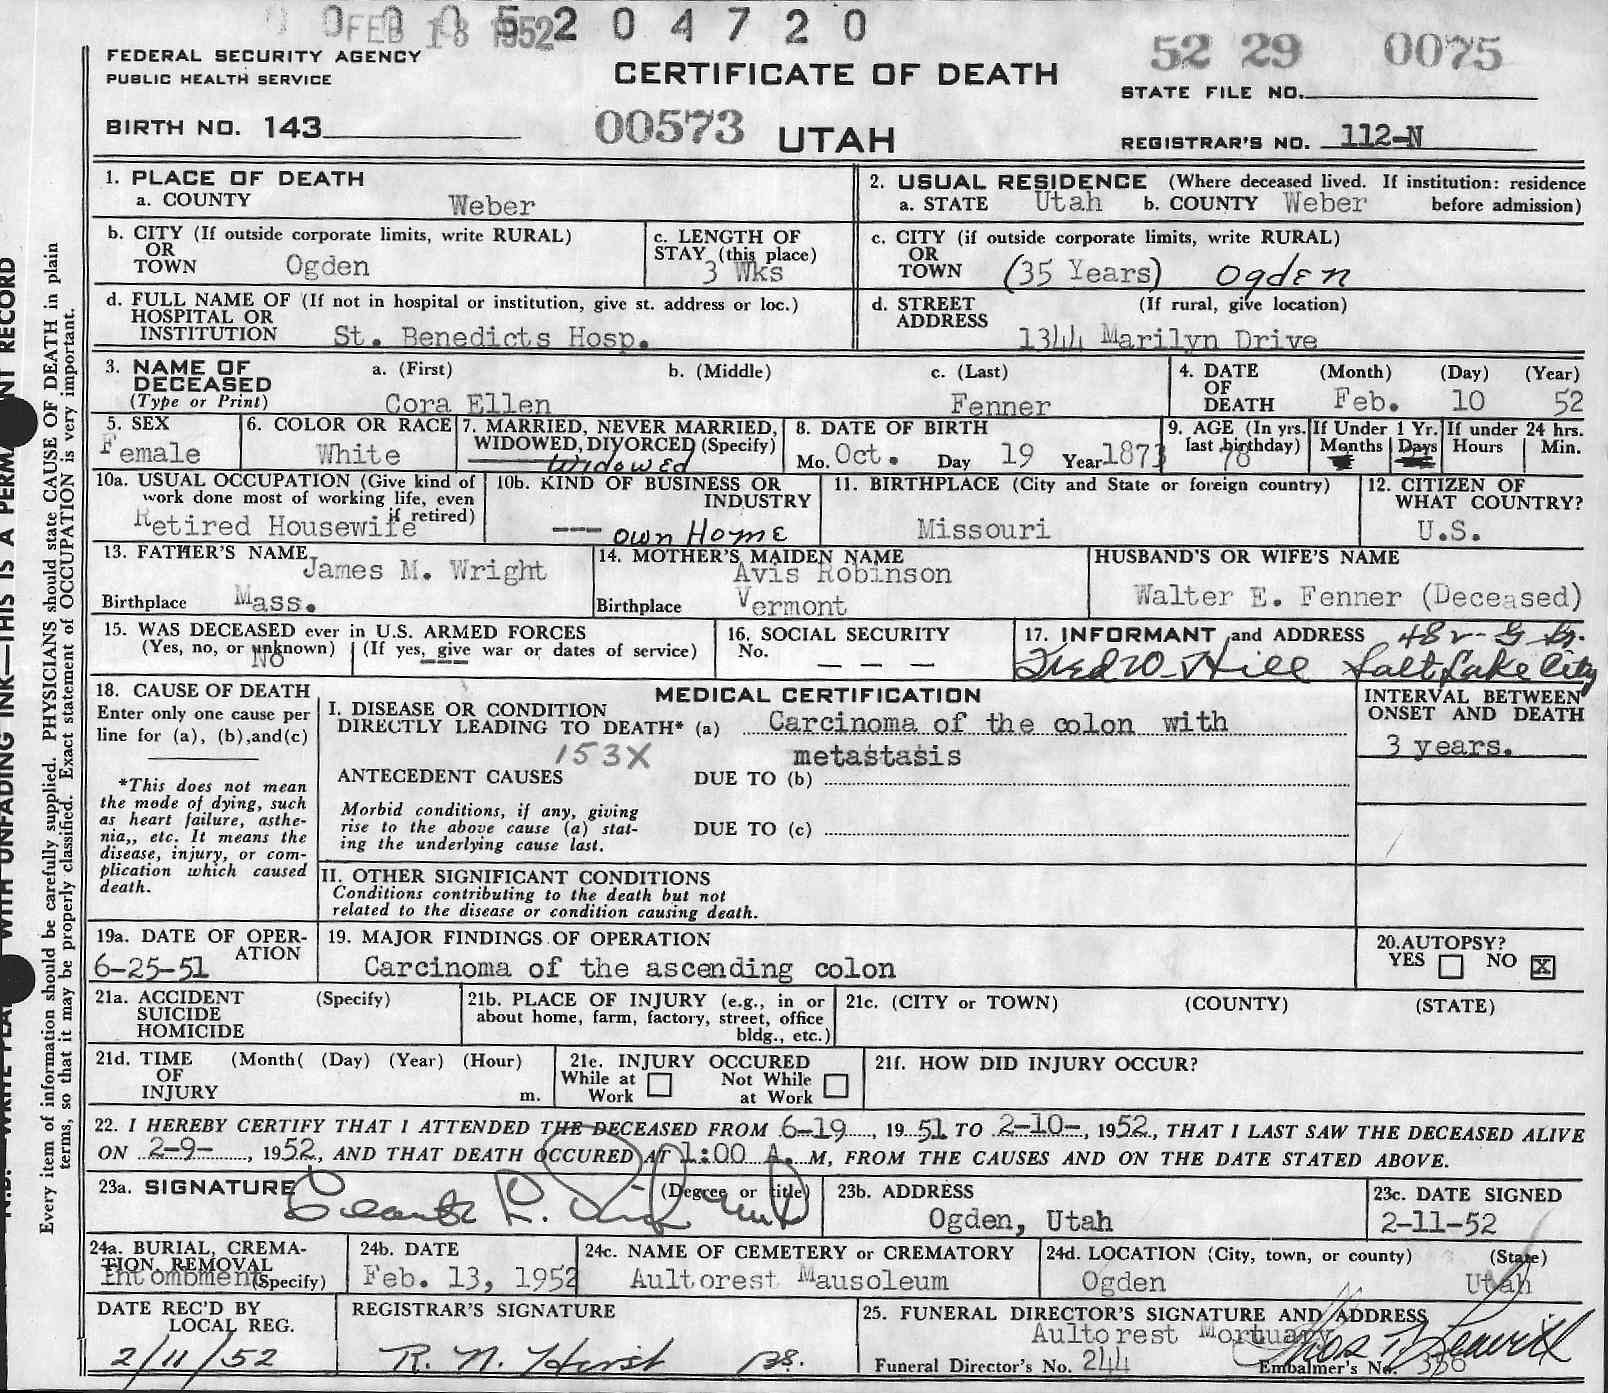 FEB 18 1952
0 0 0 5 2 0 4 7 2 0
FEDERAL SECURITY AGENCY
PUBLIC HEALTH SERVICE
CERTIFICATE OF DEATH
52 29 0075
STATE FILE NO.
BIRTH NO. 143
00573 UTAH
REGISTRAR'S NO. 112-N
1. PLACE OF DEATH
a. COUNTY Weber
2. USUAL RESIDENCE (Where deceased lived. If institution: residence
a. STATE Utah b. COUNTY Weber before admission)
b. CITY (If outside corporate limits, write RURAL)
OR
TOWN Ogden
c. LENGTH OF
STAY (this place)
3 Wks
c. CITY (if outside corporate limits, write RURAL)
OR
TOWN (35 Years) Ogden
d. FULL NAME OF (If not in hospital or institution, give st. address or loc.)
HOSPITAL OR
INSTITUTION St. Benedicts Hosp.
d. STREET (If rural, give location)
ADDRESS
1344 Marilyn Drive
3. NAME OF
DECEASED
(Type or Print)
a. (First) b. (Middle) c. (Last)
Cora Ellen Fenner
4. DATE
OF
DEATH
(Month) (Day) (Year)
Feb. 10 52
5. SEX
Female
6. COLOR OR RACE
White
7. MARRIED, NEVER MARRIED,
WIDOWED, DIVORCED (Specify)
Widowed
8. DATE OF BIRTH
Mo. Oct. Day 19 Year 1873
9. AGE (In yrs.
last birthday)
78
If Under 1 Yr.
Months Days
If under 24 hrs.
Hours Min.
10a. USUAL OCCUPATION (Give kind of
work done most of working life, even
if retired)
Retired Housewife
10b. KIND OF BUSINESS OR
INDUSTRY
--- Own Home
11. BIRTHPLACE (City and State or foreign country)
Missouri
12. CITIZEN OF
WHAT COUNTRY?
U.S.
13. FATHER'S NAME
James M. Wright
Birthplace Mass.
14. MOTHER'S MAIDEN NAME
Avis Robinson
Birthplace Vermont
HUSBAND'S OR WIFE'S NAME
Walter E. Fenner (Deceased)
15. WAS DECEASED ever in U.S. ARMED FORCES
(Yes, no, or unknown) (If yes, give war or dates of service)
No ---
16. SOCIAL SECURITY
No. - - -
17. INFORMANT and ADDRESS 482- G St.
Fred W. Hill Salt Lake City
18. CAUSE OF DEATH
Enter only one cause per
line for (a), (b), and(c)
*This does not mean
the mode of dying, such
as heart failure, asthe-
nia,, etc. It means the
disease, injury, or com-
plication which caused
death.
MEDICAL CERTIFICATION
I. DISEASE OR CONDITION
DIRECTLY LEADING TO DEATH* (a) Carcinoma of the colon with
153X metastasis
ANTECEDENT CAUSES DUE TO (b)
Morbid conditions, if any, giving
rise to the above cause (a) stat-
ing the underlying cause last.
DUE TO (c)
INTERVAL BETWEEN
ONSET AND DEATH
3 years.
II. OTHER SIGNIFICANT CONDITIONS
Conditions contributing to the death but not
related to the disease or condition causing death.
19a. DATE OF OPER-
ATION
6-25-51
19. MAJOR FINDINGS OF OPERATION
Carcinoma of the ascending colon
20. AUTOPSY?
YES NO X
21a. ACCIDENT (Specify)
SUICIDE
HOMICIDE
21b. PLACE OF INJURY (e.g., in or
about home, farm, factory, street, office
bldg., etc.)
21c. (CITY or TOWN) (COUNTY) (STATE)
21d. TIME (Month( (Day) (Year) (Hour)
OF
INJURY m.
21e. INJURY OCCURED
While at Not While
Work at Work
21f. HOW DID INJURY OCCUR?
22. I HEREBY CERTIFY THAT I ATTENDED THE DECEASED FROM 6-19, 1951 TO 2-10-, 1952, THAT I LAST SAW THE DECEASED ALIVE
ON 2-9-, 1952, AND THAT DEATH OCCURED AT 1:00 A. M, FROM THE CAUSES AND ON THE DATE STATED ABOVE.
23a. SIGNATURE (Degree or title)
23b. ADDRESS
Ogden, Utah
23c. DATE SIGNED
2-11-52
24a. BURIAL, CREMA-
TION, REMOVAL
Entombment (Specify)
24b. DATE
Feb. 13, 1952
24c. NAME OF CEMETERY or CREMATORY
Aultorest Mausoleum
24d. LOCATION (City, town, or county) (State)
Ogden Utah
DATE REC'D BY
LOCAL REG.
2/11/52
REGISTRAR'S SIGNATURE
R. N. Hirst
25. FUNERAL DIRECTOR'S SIGNATURE AND ADDRESS
Aultorest Mortuary
Funeral Director's No. 244 Embalmer's No. 356
Every item of information should be carefully supplied. PHYSICIANS should state CAUSE OF DEATH in plain
terms, so that it may be properly classified. Exact statement of OCCUPATION is very important.
WITH UNFADING INK—THIS IS A PERM NT RECORD